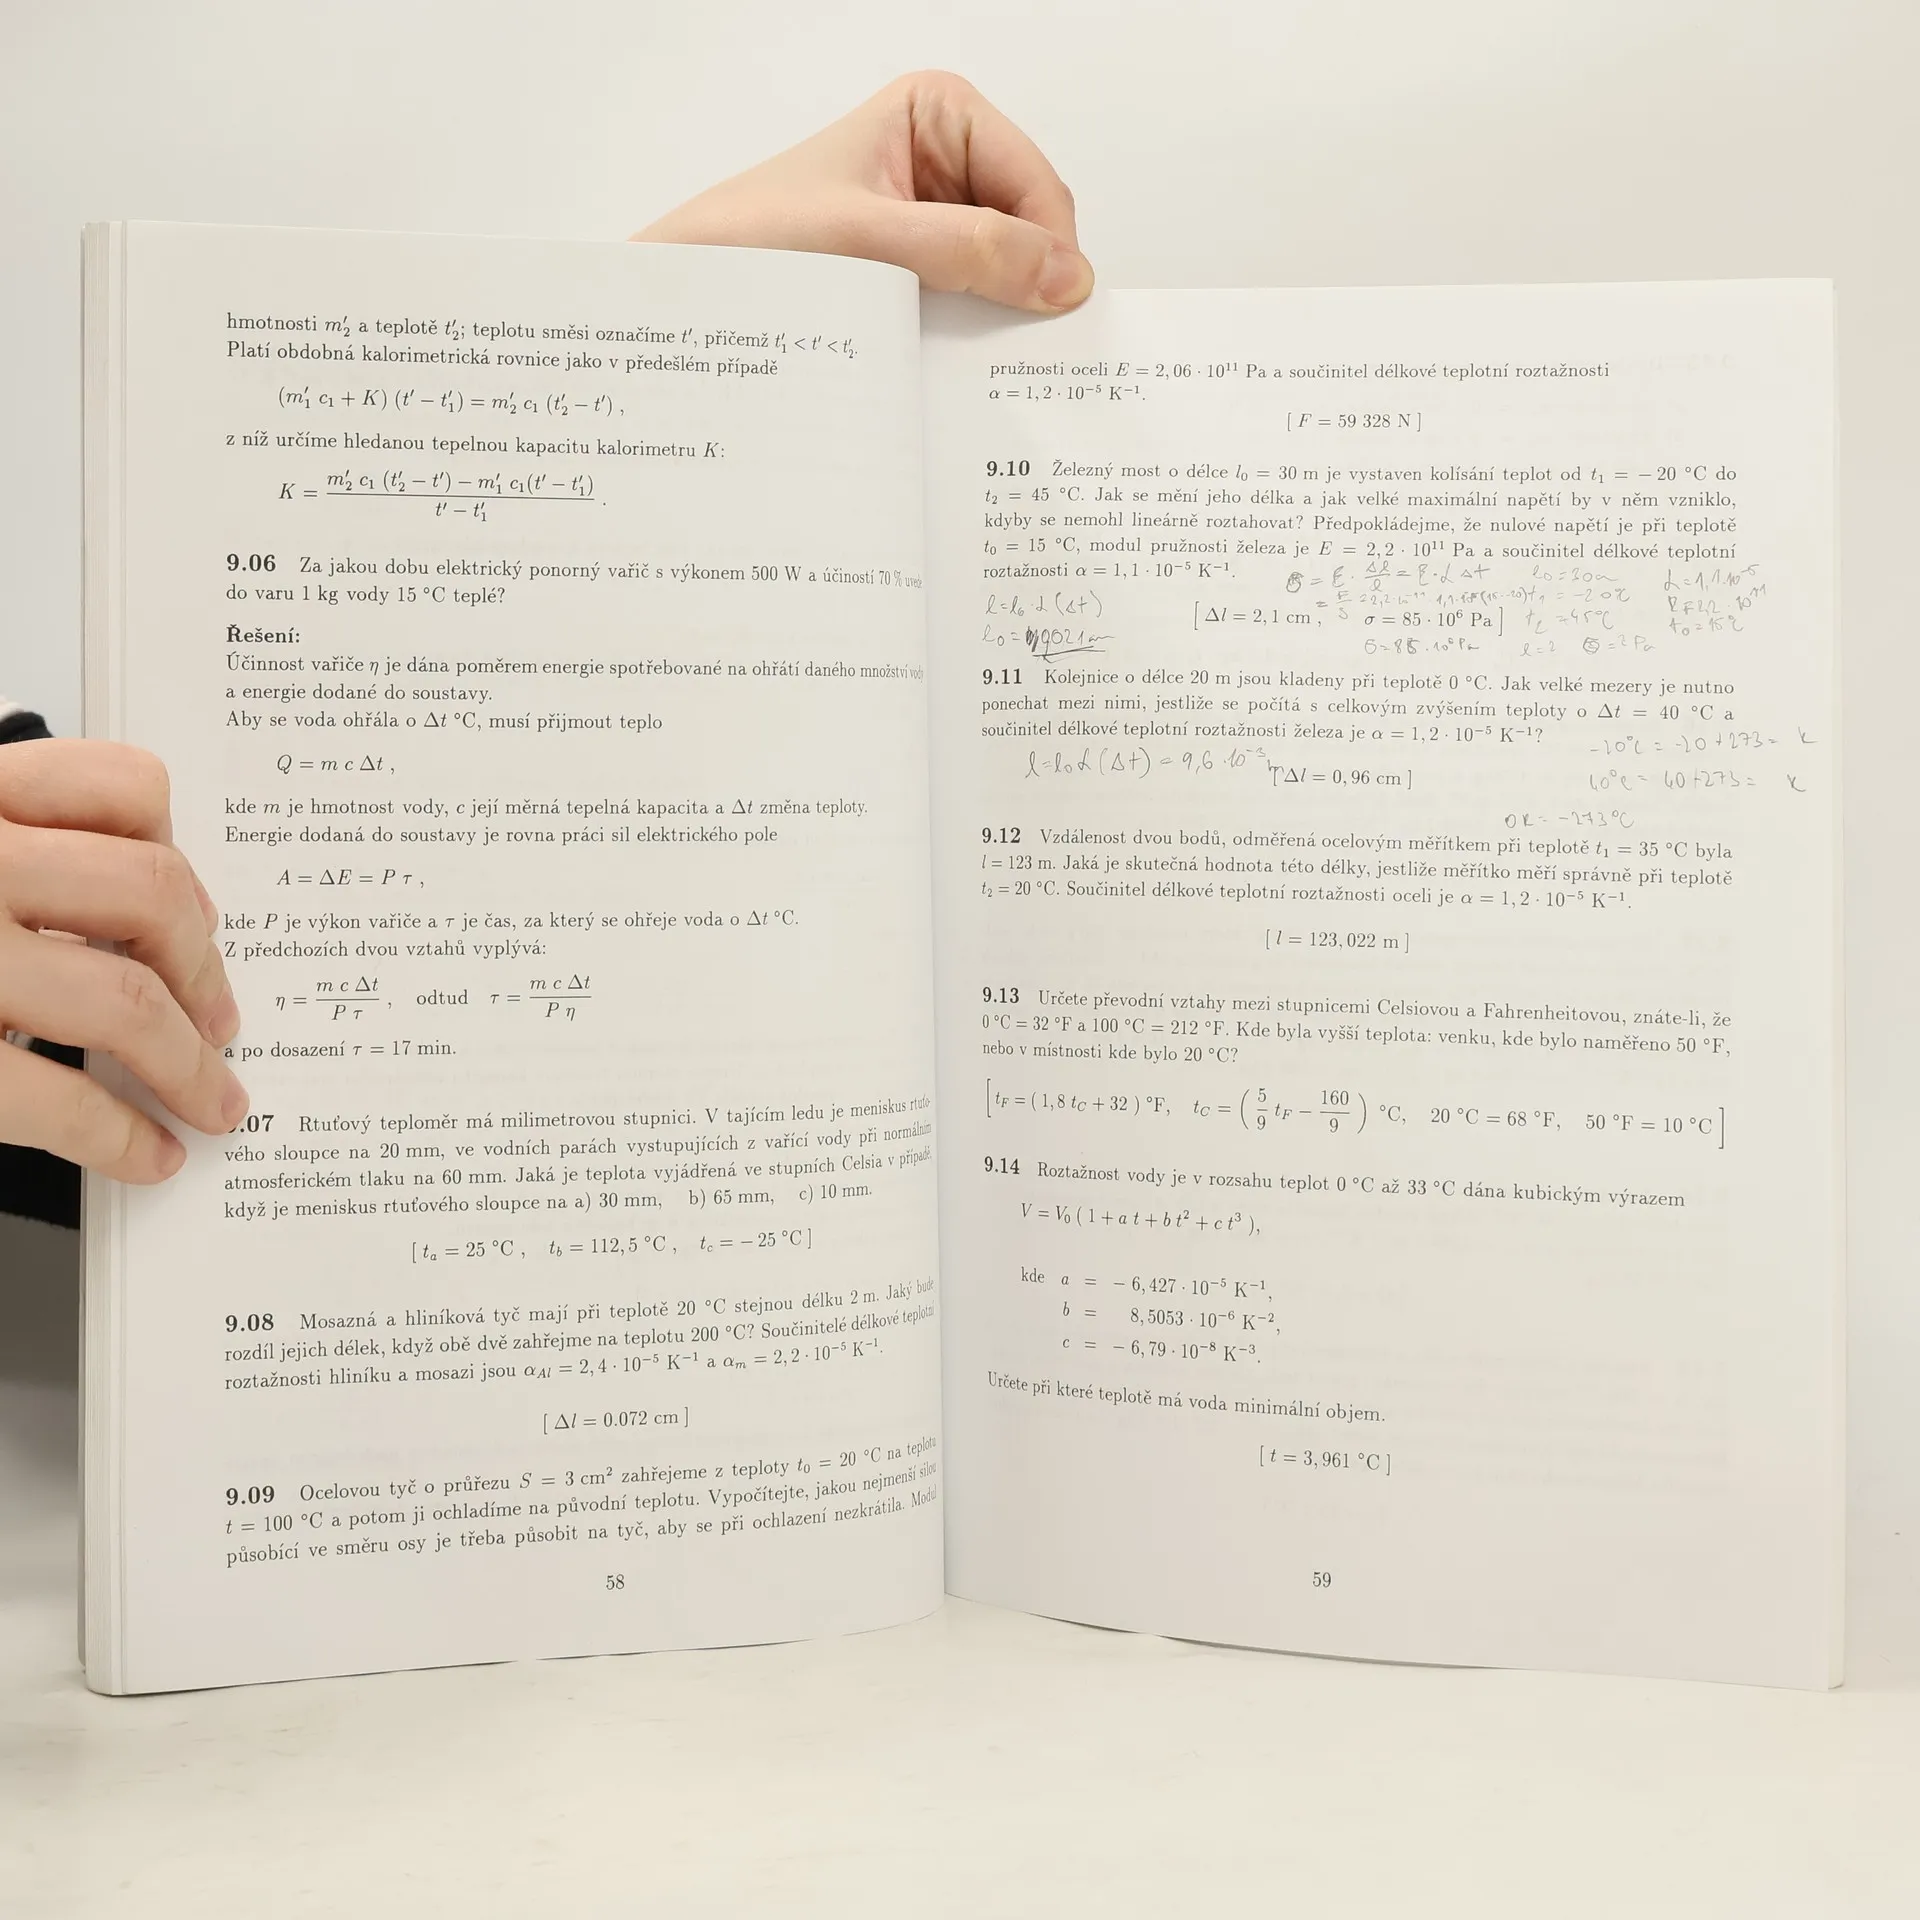 hmotnosti m′₂ a teplotě t′₂; teplotu směsi označíme t′, přičemž t′₁ < t′ < t′₂.
Platí obdobná kalorimetrická rovnice jako v předešlém případě
(m′₁ c₁ + K) (t′ − t′₁) = m′₂ c₁ (t′₂ − t′) ,
z níž určíme hledanou tepelnou kapacitu kalorimetru K:
K = m′₂ c₁ (t′₂ − t′) − m′₁ c₁(t′ − t′₁)
t′ − t′₁ .
9.06 Za jakou dobu elektrický ponorný vařič s výkonem 500 W a účiností 70 % uvede
do varu 1 kg vody 15 °C teplé?
Řešení:
Účinnost vařiče η je dána poměrem energie spotřebované na ohřátí daného množství vody
a energie dodané do soustavy.
Aby se voda ohřála o Δt °C, musí přijmout teplo
Q = m c Δt ,
kde m je hmotnost vody, c její měrná tepelná kapacita a Δt změna teploty.
Energie dodaná do soustavy je rovna práci sil elektrického pole
A = ΔE = P τ ,
kde P je výkon vařiče a τ je čas, za který se ohřeje voda o Δt °C.
Z předchozích dvou vztahů vyplývá:
η = m c Δt / P τ , odtud τ = m c Δt / P η
a po dosazení τ = 17 min.
.07 Rtuťový teploměr má milimetrovou stupnici. V tajícím ledu je meniskus rtuťo-
vého sloupce na 20 mm, ve vodních parách vystupujících z vařící vody při normálním
atmosferickém tlaku na 60 mm. Jaká je teplota vyjádřená ve stupních Celsia v případě,
když je meniskus rtuťového sloupce na a) 30 mm, b) 65 mm, c) 10 mm.
[ tₐ = 25 °C , t_b = 112,5 °C , t_c = − 25 °C ]
9.08 Mosazná a hliníková tyč mají při teplotě 20 °C stejnou délku 2 m. Jaký bude
rozdíl jejich délek, když obě dvě zahřejme na teplotu 200 °C? Součinitelé délkové teplotní
roztažnosti hliníku a mosazi jsou α_Al = 2,4 · 10⁻⁵ K⁻¹ a α_m = 2,2 · 10⁻⁵ K⁻¹.
[ Δl = 0.072 cm ]
9.09 Ocelovou tyč o průřezu S = 3 cm² zahřejeme z teploty t₀ = 20 °C na teplotu
t = 100 °C a potom ji ochladíme na původní teplotu. Vypočítejte, jakou nejmenší silou
působící ve směru osy je třeba působit na tyč, aby se při ochlazení nezkrátila. Modul
58
pružnosti oceli E = 2,06 · 10¹¹ Pa a součinitel délkové teplotní roztažnosti
α = 1,2 · 10⁻⁵ K⁻¹.
[ F = 59 328 N ]
9.10 Železný most o délce l₀ = 30 m je vystaven kolísání teplot od t₁ = − 20 °C do
t₂ = 45 °C. Jak se mění jeho délka a jak velké maximální napětí by v něm vzniklo,
kdyby se nemohl lineárně roztahovat? Předpokládejme, že nulové napětí je při teplotě
t₀ = 15 °C, modul pružnosti železa je E = 2,2 · 10¹¹ Pa a součinitel délkové teplotní
roztažnosti α = 1,1 · 10⁻⁵ K⁻¹. σ = E · Δl/l = E · α Δt l₀ = 30m α = 1,1.10⁻⁵
l = l₀ · α (Δt) t₁ = −20°C
[ Δl = 2,1 cm , σ = 85 · 10⁶ Pa ] t₂ = 45°C t₀ = 15°C
l = ? σ = ? Pa
9.11 Kolejnice o délce 20 m jsou kladeny při teplotě 0 °C. Jak velké mezery je nutno
ponechat mezi nimi, jestliže se počítá s celkovým zvýšením teploty o Δt = 40 °C a
součinitel délkové teplotní roztažnosti železa je α = 1,2 · 10⁻⁵ K⁻¹?
-20°C = -20 + 273 = K
l = l₀ α (Δt) = 9,6 · 10⁻³ m
[ Δl = 0,96 cm ] 40°C = 40 + 273 = K
0K = -273°C
9.12 Vzdálenost dvou bodů, odměřená ocelovým měřítkem při teplotě t₁ = 35 °C byla
l = 123 m. Jaká je skutečná hodnota této délky, jestliže měřítko měří správně při teplotě
t₂ = 20 °C. Součinitel délkové teplotní roztažnosti oceli je α = 1,2 · 10⁻⁵ K⁻¹.
[ l = 123,022 m ]
9.13 Určete převodní vztahy mezi stupnicemi Celsiovou a Fahrenheitovou, znáte-li, že
0 °C = 32 °F a 100 °C = 212 °F. Kde byla vyšší teplota: venku, kde bylo naměřeno 50 °F,
nebo v místnosti kde bylo 20 °C?
[ t_F = ( 1,8 t_C + 32 ) °F, t_C = ( 5/9 t_F − 160/9 ) °C, 20 °C = 68 °F, 50 °F = 10 °C ]
9.14 Roztažnost vody je v rozsahu teplot 0 °C až 33 °C dána kubickým výrazem
V = V₀ ( 1 + a t + b t² + c t³ ),
kde a = − 6,427 · 10⁻⁵ K⁻¹,
b = 8,5053 · 10⁻⁶ K⁻²,
c = − 6,79 · 10⁻⁸ K⁻³.
Určete při které teplotě má voda minimální objem.
[ t = 3,961 °C ]
59